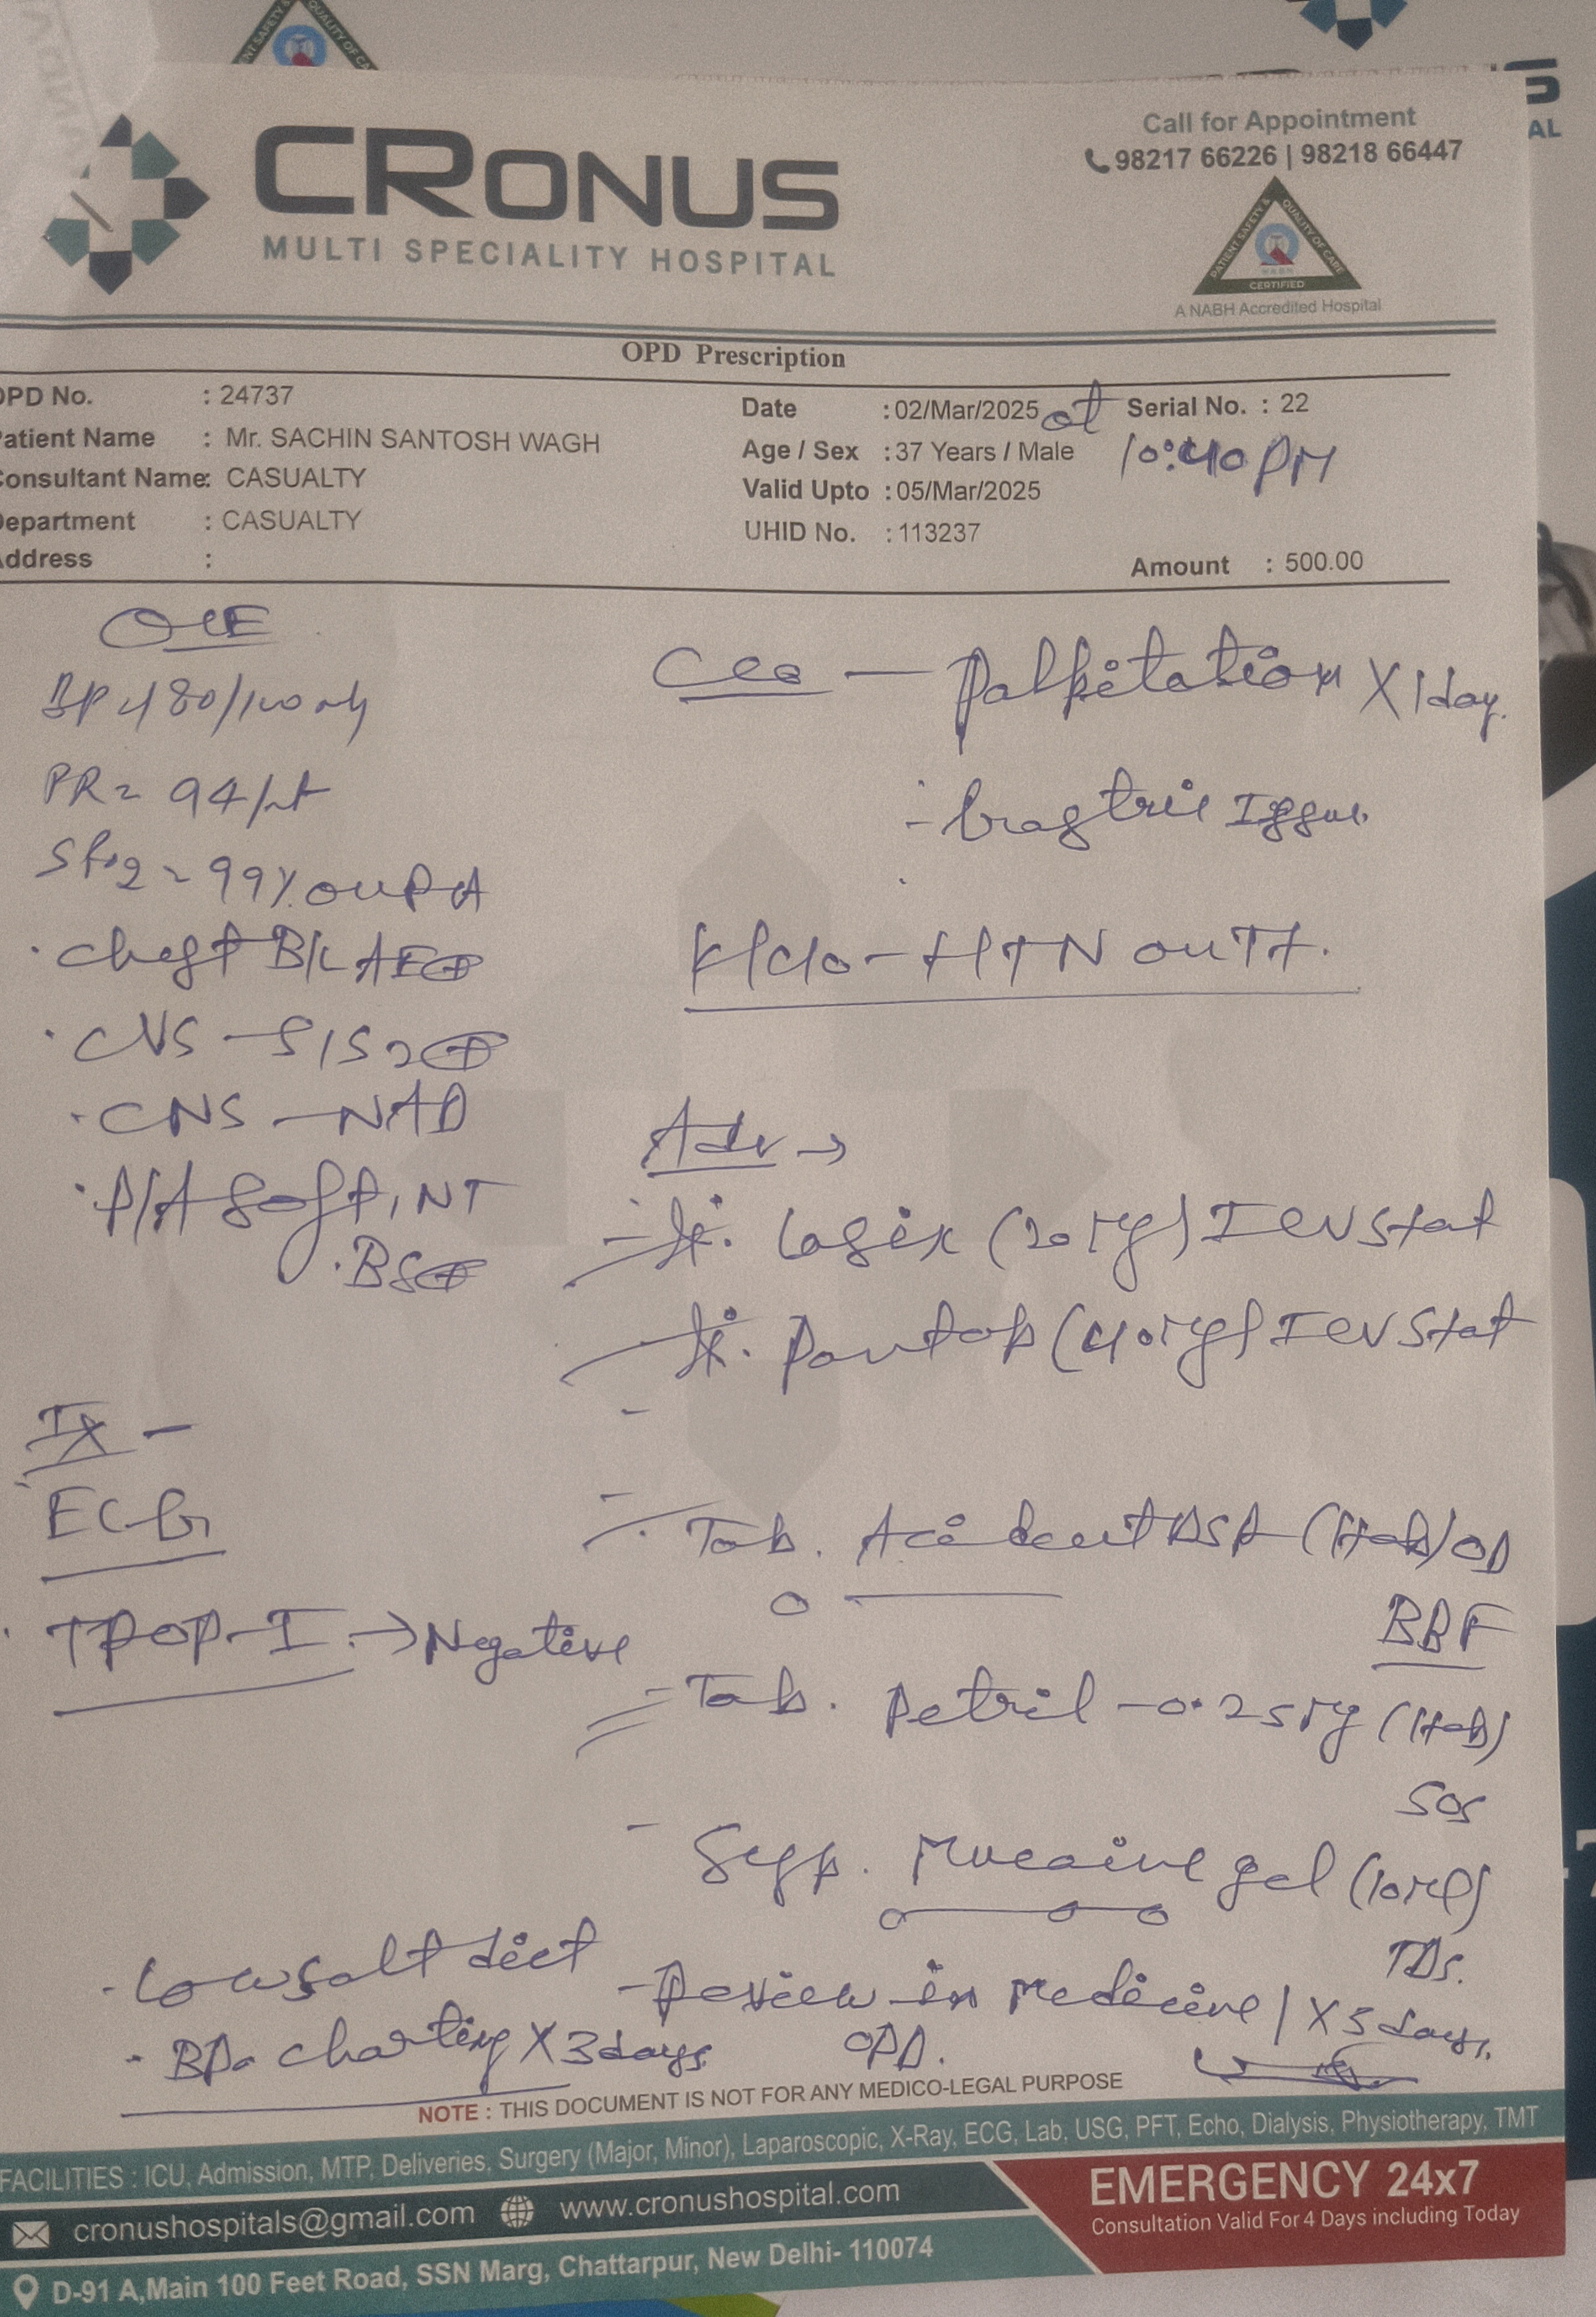 CRONUS
MULTI SPECIALITY HOSPITAL
Call for Appointment
98217 66226 | 98218 66447
PATIENT SAFETY & QUALITY OF CARE
NABH
CERTIFIED
A NABH Accredited Hospital
OPD Prescription
OPD No. : 24737
Patient Name : Mr. SACHIN SANTOSH WAGH
Consultant Name: CASUALTY
Department : CASUALTY
Address :
Date : 02/Mar/2025 at
Age / Sex : 37 Years / Male
Valid Upto : 05/Mar/2025
UHID No. : 113237
Serial No. : 22
10:40 PM
Amount : 500.00
O/E
BP 180/100
PR = 94/
SPO2 = 99% on RA
· Chest B/L AE⊕
· CVS - S1S2⊕
· CNS - NAD
· P/A Soft, NT
· BS⊕
Ix -
ECG
· TROP-I → Negative
· Low salt diet
· BP charting X 3 days
C/o - Palpitation X 1 day.
- Gastric Issue.
K/c/o - HTN on Tt.
Adv →
- Lasix (20 mg) IV Stat
- Pantop (40 mg) IV Stat
- Tab. DSR (1tab) OD
BBF
- Tab. Petril - 0.25 mg (1tab)
SOS
- Syp. Mucaine gel (10 ml)
TDS.
- Review in Medicine / X 5 days.
OPD.
NOTE : THIS DOCUMENT IS NOT FOR ANY MEDICO-LEGAL PURPOSE
FACILITIES : ICU, Admission, MTP, Deliveries, Surgery (Major, Minor), Laparoscopic, X-Ray, ECG, Lab, USG, PFT, Echo, Dialysis, Physiotherapy, TMT
cronushospitals@gmail.com www.cronushospital.com
D-91 A,Main 100 Feet Road, SSN Marg, Chattarpur, New Delhi- 110074
EMERGENCY 24x7
Consultation Valid For 4 Days including Today